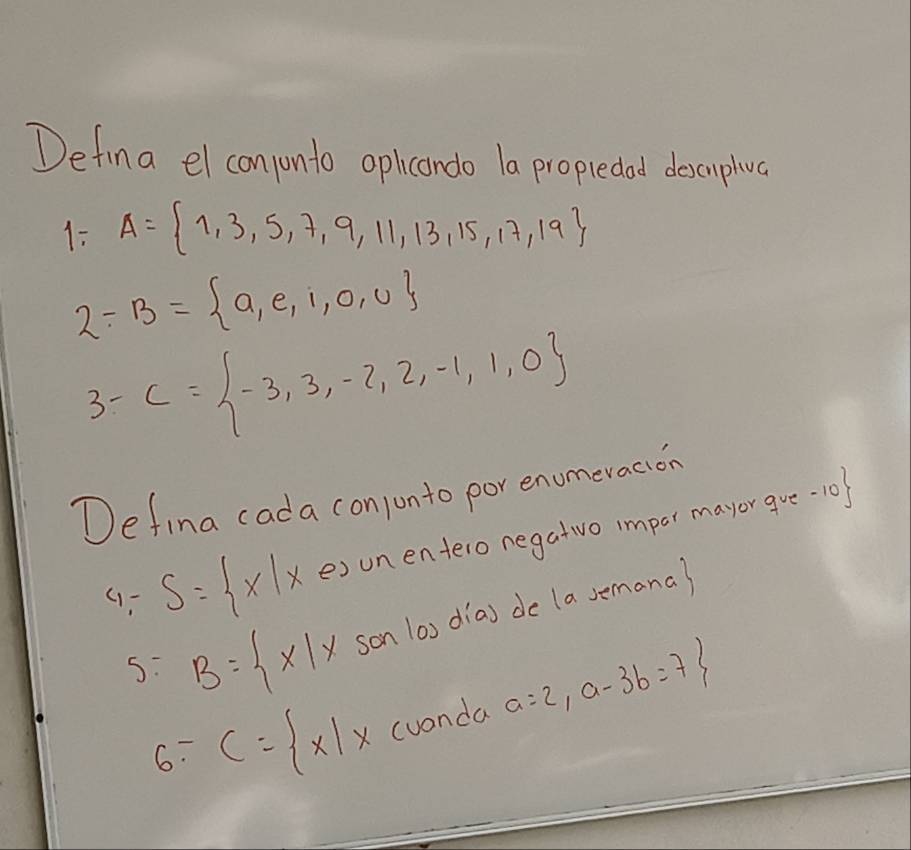 Defina el conjunto aplicando la propiedad descriptiva
1- A = {1, 3, 5, 7, 9, 11, 13, 15, 17, 19}
2- B = {a, e, i, o, u}
3- C = {-3, 3, -2, 2, -1, 1, 0}
Defina cada conjunto por enumeración
4- S = {x/x es un entero negativo impar mayor que -10}
5- B = {x/x son los días de la semana}
6- C = {x/x cuanda a=2, a-3b=7}